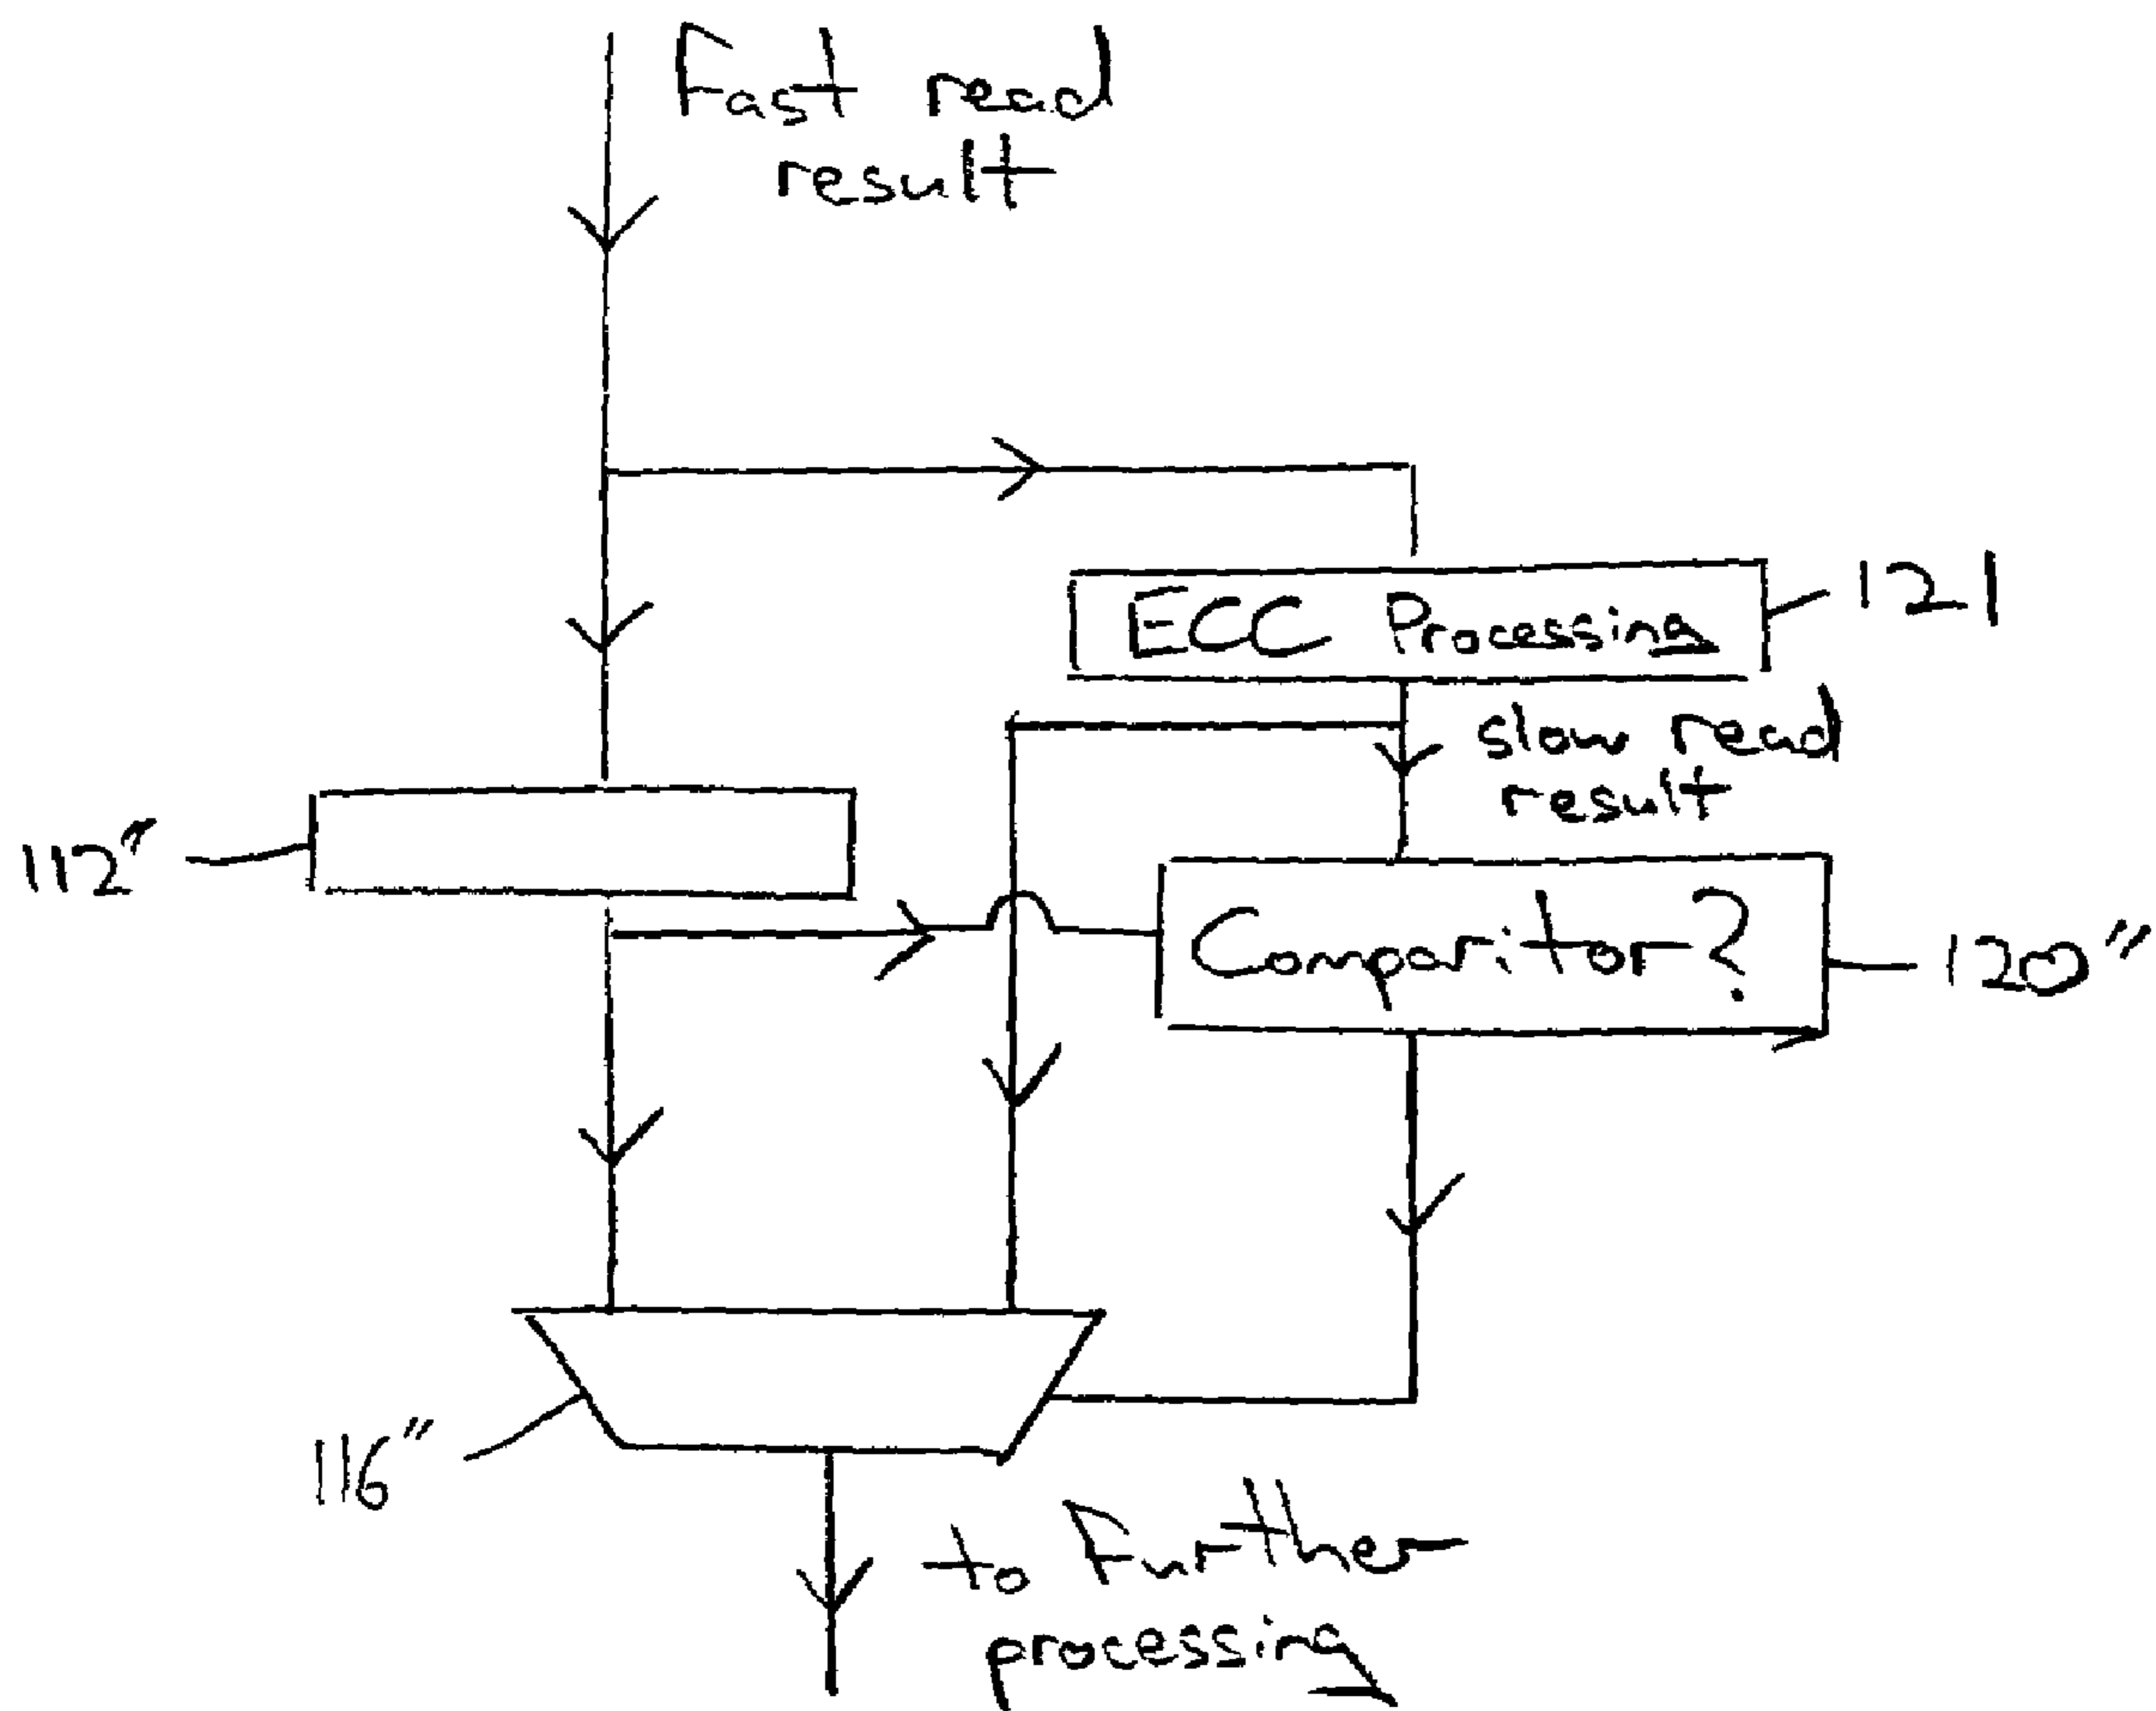 Fast read
result
ECC Processing
121
slow read
result
112"
Comparitor?
120"
116"
to Further
processing